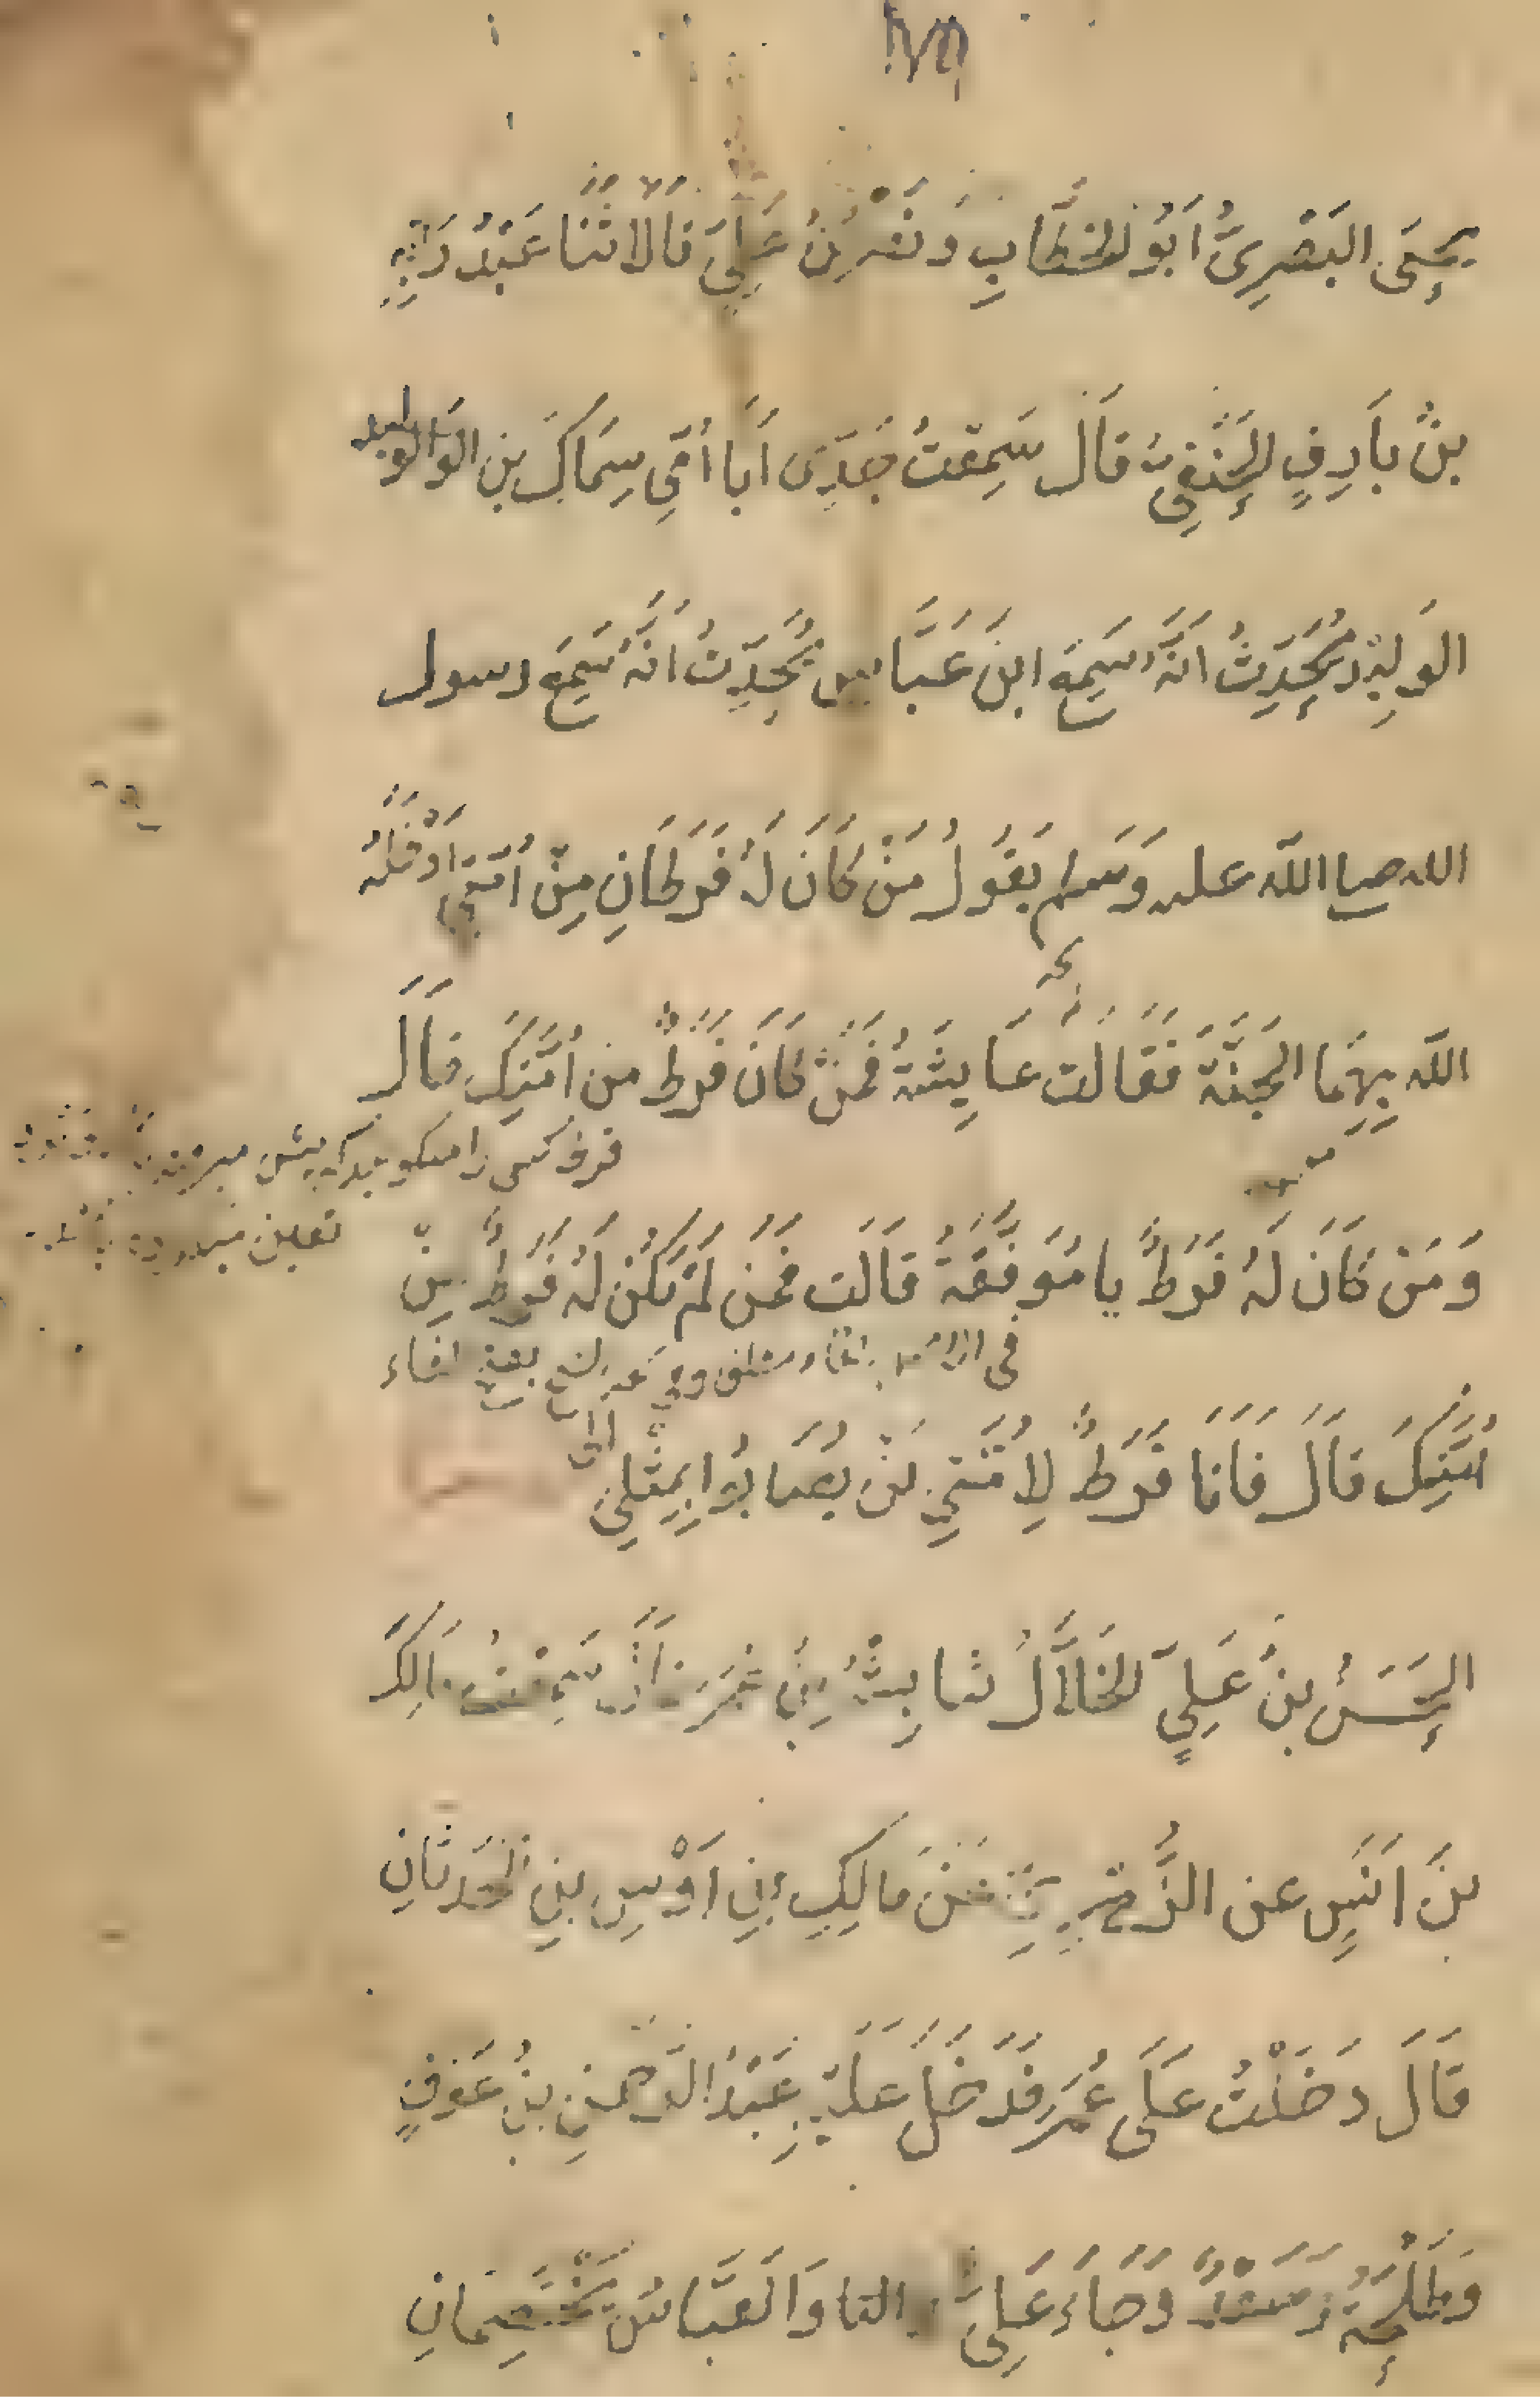 يحيى البصري أبو الخطاب ونصر بن علي قالا ثنا عبد ربه
بن بارق الحنفي قال سمعت جدي أبا أمي سماك بن الوليد
الوليد يحدث أنه سمع ابن عباس يحدث أنه سمع رسول
الله صلى الله عليه وسلم يقول من كان له فرطان من أمتي أدخله
الله بهما الجنة فقالت عايشة فمن كان فرط من أمتك قال
فرط كسى را ميكويند كه پيش
ومن كان له فرط يا موفقة قالت فمن لم يكن له فرط من
أمتك قال فأنا فرط لأمتي لن يصابوا بمثلي
الحسن بن علي الخلال ثنا بشر بن عمر سمعت مالك
بن أنس عن الزهري عن مالك بن أوس بن الحدثان
قال دخلت على عمر فدخل عليه عبد الرحمن بن عوف
وطلحة وسعد وجاء علي والعباس يختصمان